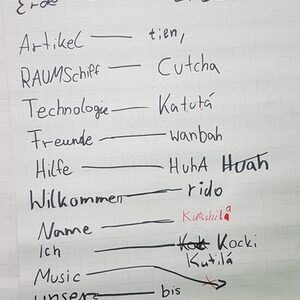 Erde
Artikel — tien,
RAUMSchiff — Cutcha
Technologie — Katutá
Freunde — wanbah
Hilfe — HuhA Huah
Wilkommen — rido
Name — Kuschilå
Ich — Kok Kocki
Kutilá
Music
unser — bis